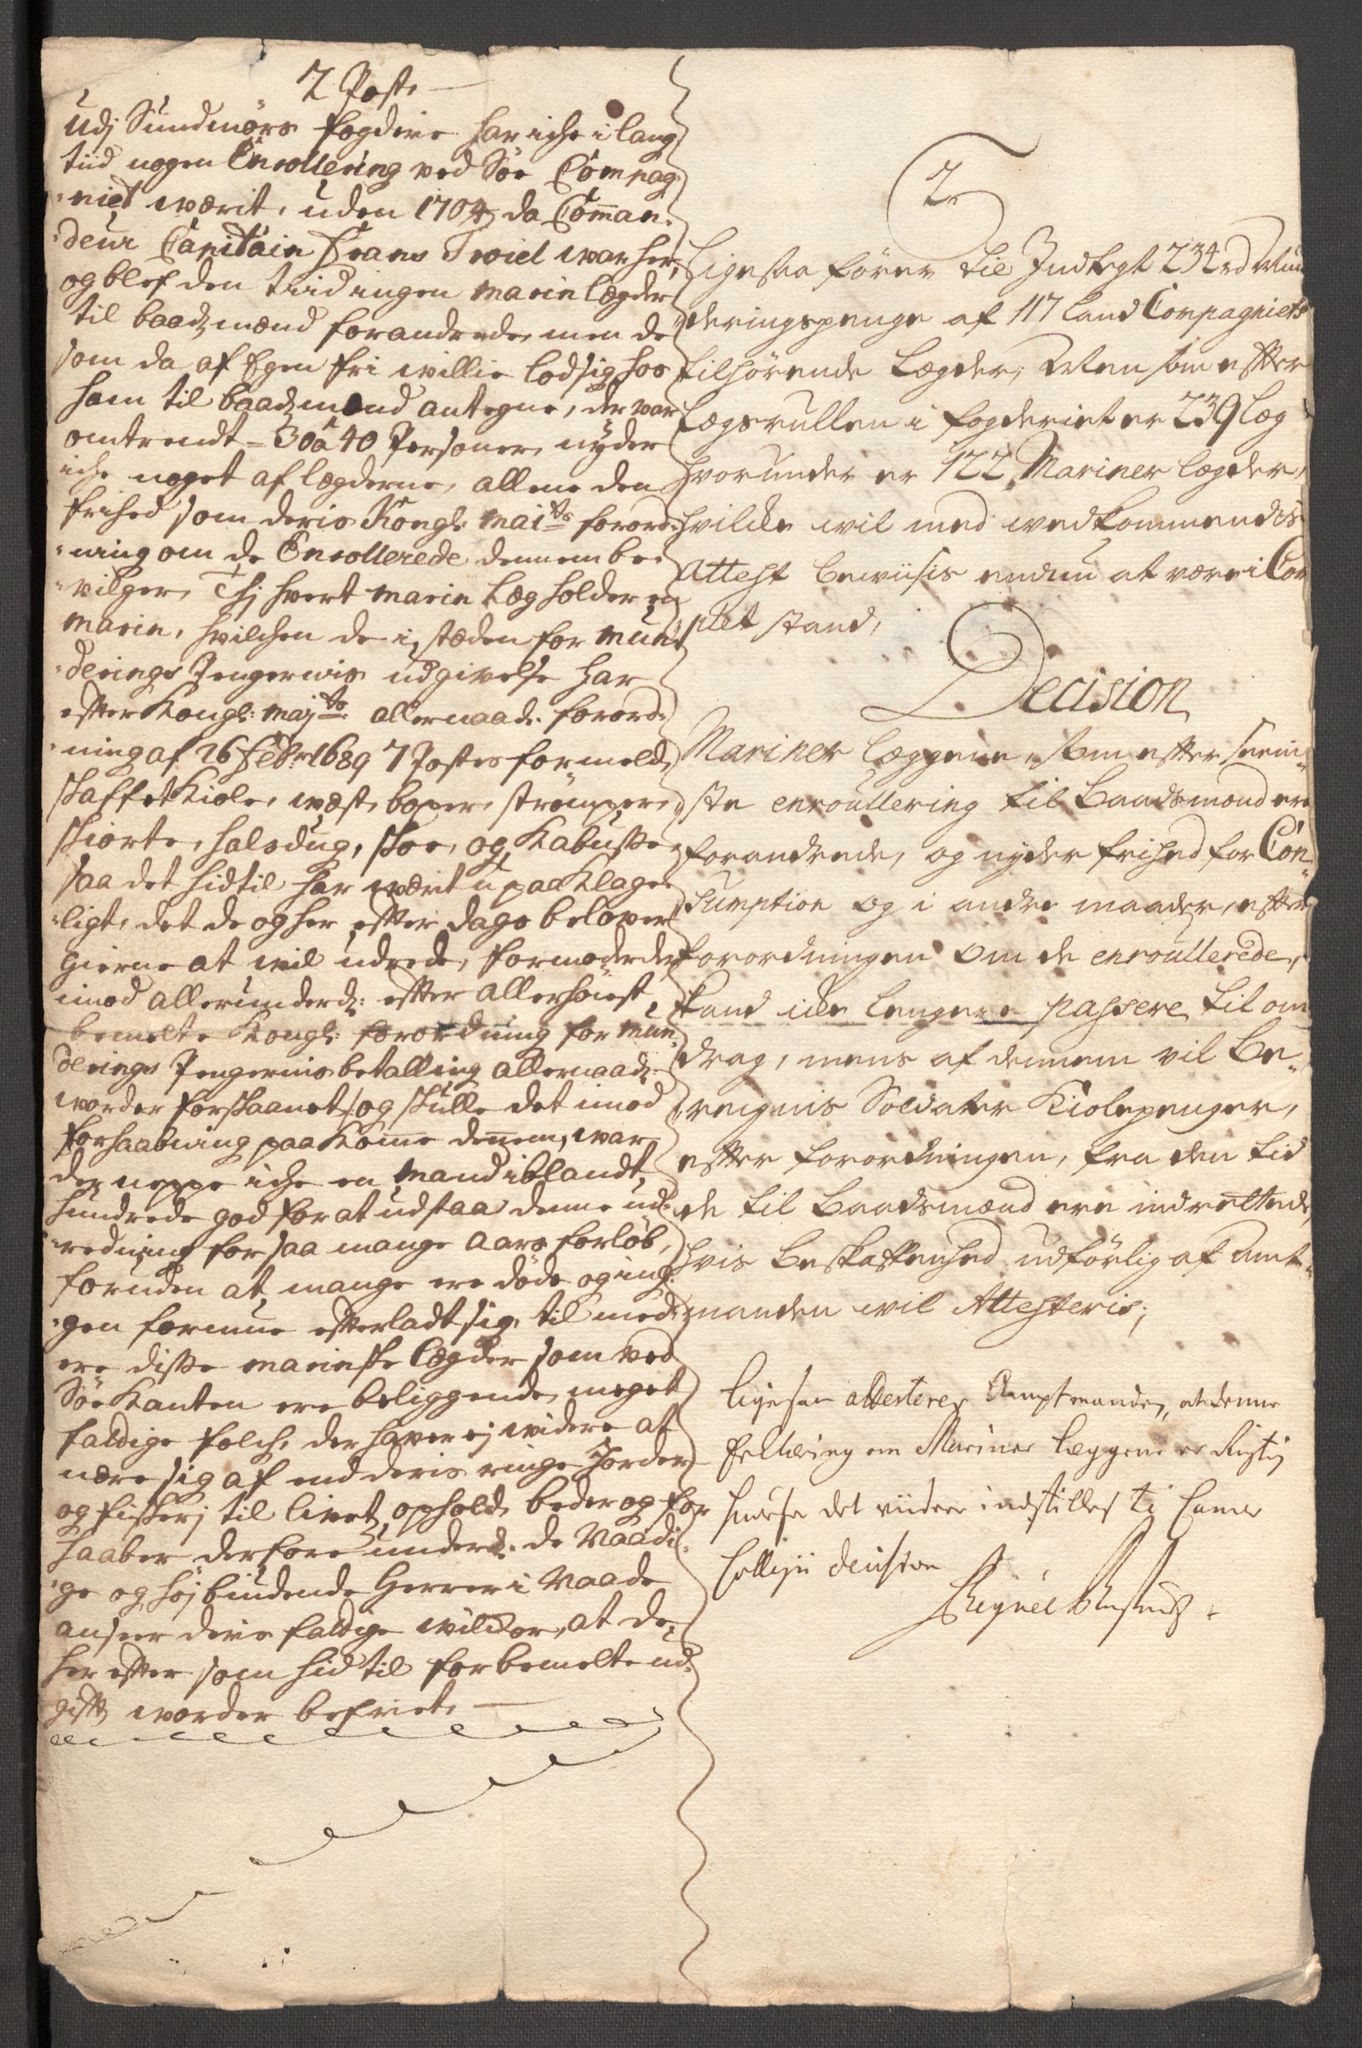 2 Post.
Udj Sundmørs fogderie har iche i lang
tiid nogen Enrollering ved Søe Compag-
niet wærit, uden 1704 da Comman-
deur Capitain Frans Twiel war her,
og blef den tiid ingen marin lægder
til baadzmænd forandrede, men de
som da af Egen fri willie lod sig hos
ham til baadzmænd antegne, der war
omtrendt - 30 a 40 Personer, nyder
iche noget af lægderne, allene den
frihed som deris Kongl: mai:ts forord-
ning om de Enrollerede dennem be-
vilger, Thj hvert marin Læg holder en
marin, hvilchen de i stæden for mun-
derings Pengernis udgivelse har
efter Kongl: maj:ts allernaad: forord-
ning af 26 Febr: 1689 7 Postes formeld,
skaffet Kiole, wæst, boxer, strømper,
skiorte, halsdug, skoe, og Kabuske
saa det hid til har wærit upaaKlage-
ligt, det de og her efter dags beløber
gierne at wil udrede, formoder der-
imod allerunderd: efter allerhøiest
bemelte Kongl: forordning for Mun-
derings Pengernis betalling allernaad:
worder forskaanet, og skulle det imod
forhaabning paaKomme dennem, war
der neppe iche en mand iblandt
hundrede god for at udstaa denne ud-
redning for saa mange aars forløb,
foruden at mange ere døde og ing-
gen formue efterladt sig, til med
ere disse marinske Lægder som ved
SøeKanten ere beliggende, meget
faldige folch, der haver ej widere at
nære sig af end deris ringe Jorder
og fiskerj til livets ophold, beder og for
haaber derfore underd: de Naadi-
ge og Højbiudende Herrer i Naade
anseer deris faldige wilkor, at de
her efter som hid til for bemelte ud-
gift worder befriet.
2
Ligesaa fører til Indtegt 234 rd Mun
deringspenge af 117 Land Compagniets
tilhørende Lægder, Men som efter
Lægsrullen i fogderiet er 239 Læg
hvorunder er 122 Mariner Lægder,
hvilke wil med wedkommendis
Attest bewiisis endnu at være i Com
plet stand,
Decision
Mariner læggene, som efter seeni-
ste enroullering til Baadsmænd ere
forandrede, og nyder frihed for Con-
sumption og i andre maader, efter
forordningen om de enroullerede,
kand icke lengere passere til om
drag, mens af dennem vil Be-
reignis Soldater Kiolepenger,
efter forordningen, fra den tid
de til Baadsmænd ere indrettede
hvis Beskaffenhed udførlig af Amt-
manden wil Attesteris;
Ligesaa attesterer Amptmanden, at denne
om Mariner Læggene er Rigtig
det viidere indstilles til Camer
Collegii decision